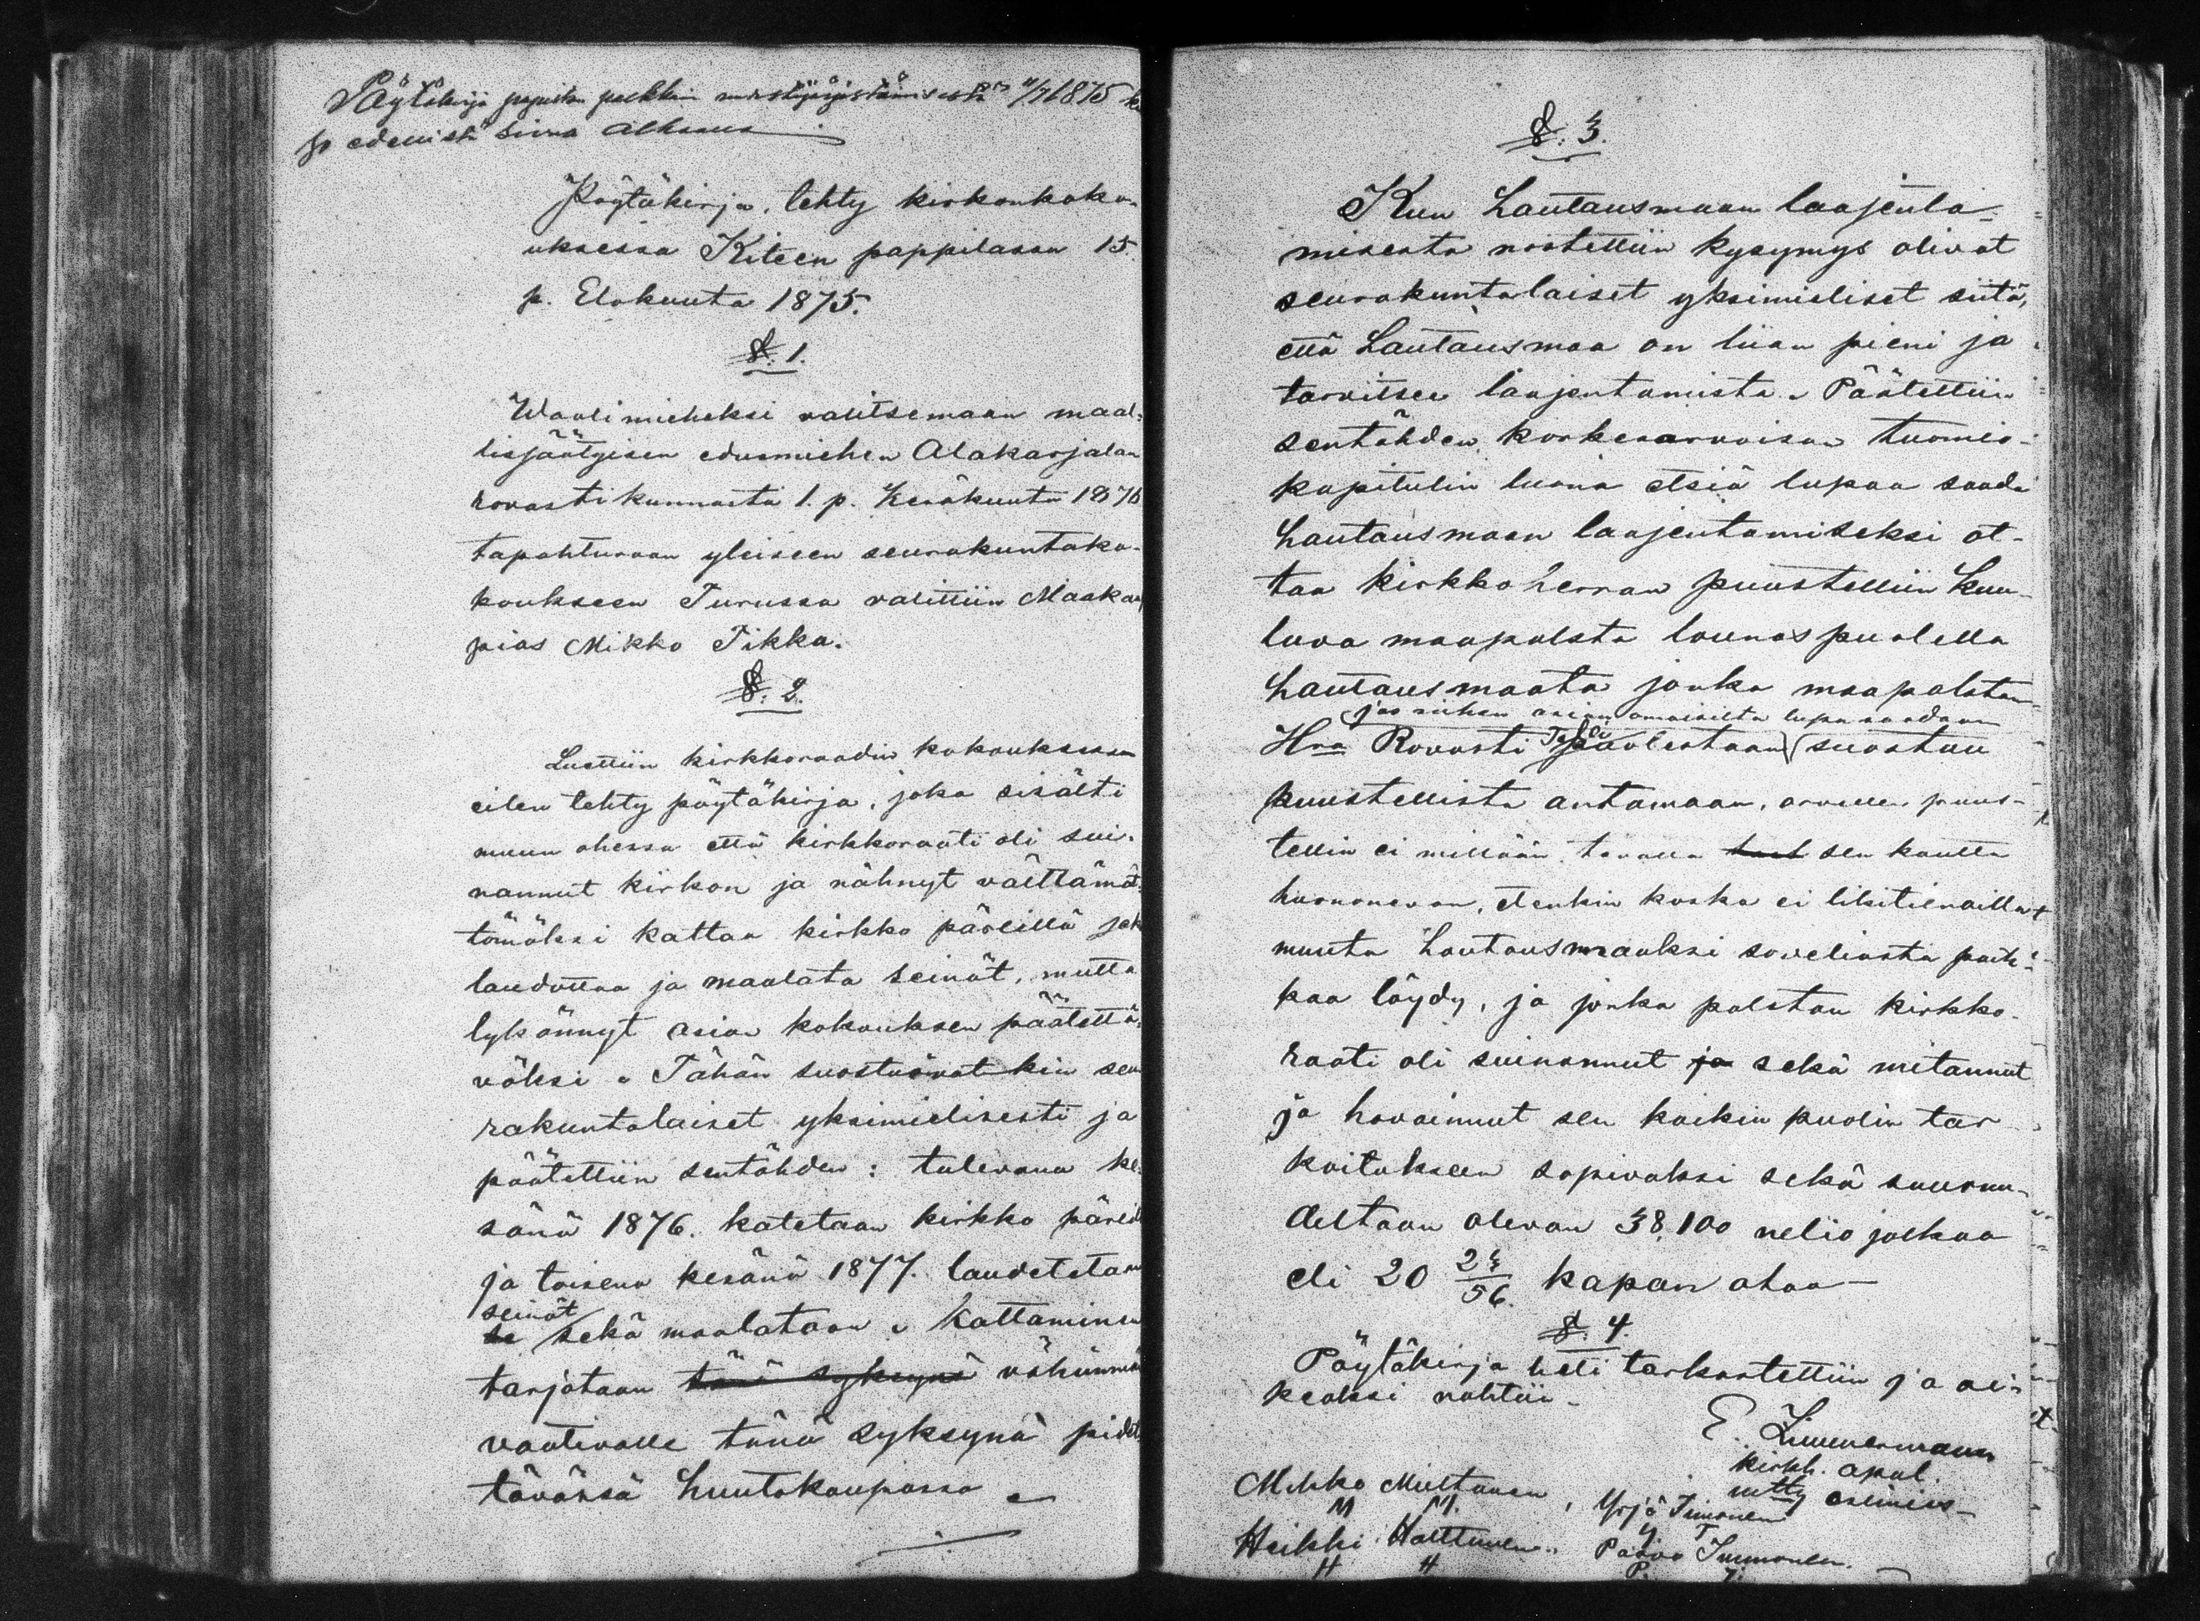 Pöytäkirja pappilan palkkain uudestijärjestämisestä 4/7 1875
jo edellistä sivua alkaava
Pöytäkirja, tehty kirkonkoko-
uksessa Kiteen pappilassa 15.
p. Elokuuta 1875.
§. 1.
Waalimieheksi valitsemaan maal-
lisjäätyisen edusmiehen Alakarjalan
rovastikunnasta 1. p. Kesäkuuta 1876
tapahtuvaan yleiseen seurakuntako-
koukseen Turussa valittiin Maakau
pias Mikko Tikka.
§. 2.
Luettiin kirkkoraadin kokouksessa
eilen tehty pöytäkirja, joka sisälti
muun ohessa että kirkkoraati oli sui-
nannut kirkon ja nähnyt välttämät-
tömäksi kattaa kirkko päreillä sek
laudottaa ja maalata seinät, mutta
lykännyt asian kokouksen päätettä-
väksi. Tähän suostuivat kin seu
rakuntalaiset yksimielisesti ja
päätettiin sentähden: tulevana ke-
sänä 1876. katetaan kirkko päreill
ja toisena kesänä 1877. laudotetaan
seinät
se sekä maalataan. Kattaminen
tarjotaan tänä syksynä vähimmän
vaativalle tänä syksynä pidet-
tävässä huutokaupassa
§. 3.
Kun Hautausmaan laajenta-
misesta nostettiin kysymys olivat
seurakuntalaiset yksimieliset siitä,
että Hautausmaa on liian pieni ja
tarvitsee laajentamista. Päätettiin
sentähden korkeaarvoisan tuomio-
kapitulin luona etsiä lupaa saada
Hautausmaan laajentamiseksi ot-
taa kirkkoherran puustelliin kuu-
luva maapalsta lounaspuolella
Hautausmaata jonka maapalstan
jos siihen asianomaisilta lupa saadaan
Hra Rovasti puolestaan suostuu
puustellista antamaan, arvellen puus-
tellin ei millään tavalla sen kautta
huononevan, etenkin koska ei likitienoilla
muuta hautausmaaksi soveliasta paik-
kaa löydy, ja jonka palstan kirkko-
raati oli suinannut ja sekä mitannut
ja havainnut sen kaikin puolin tar-
koitukseen sopivaksi sekä suuruu-
deltaan olevan 38,100 neliö jalkaa
eli 20 23/56 kapan alaa —
§. 4.
Pöytäkirja heti tarkastettiin ja oi-
keaksi nähtiin.
E. Zimmermann
kirkh. apul.
esimies
Mikko Multanen, Yrjö Timonen
M M. Y T
Heikki Halttunen. Paavo Immonen.
H H P. I.